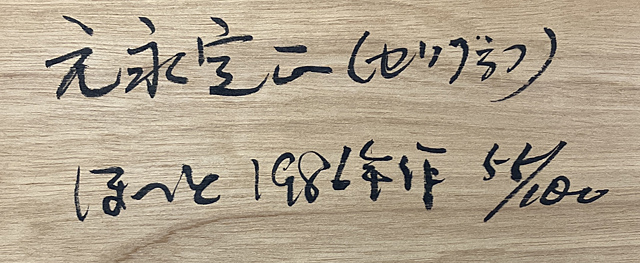 元永定正(セリグラフ)
ほっと 1986年作 55/100